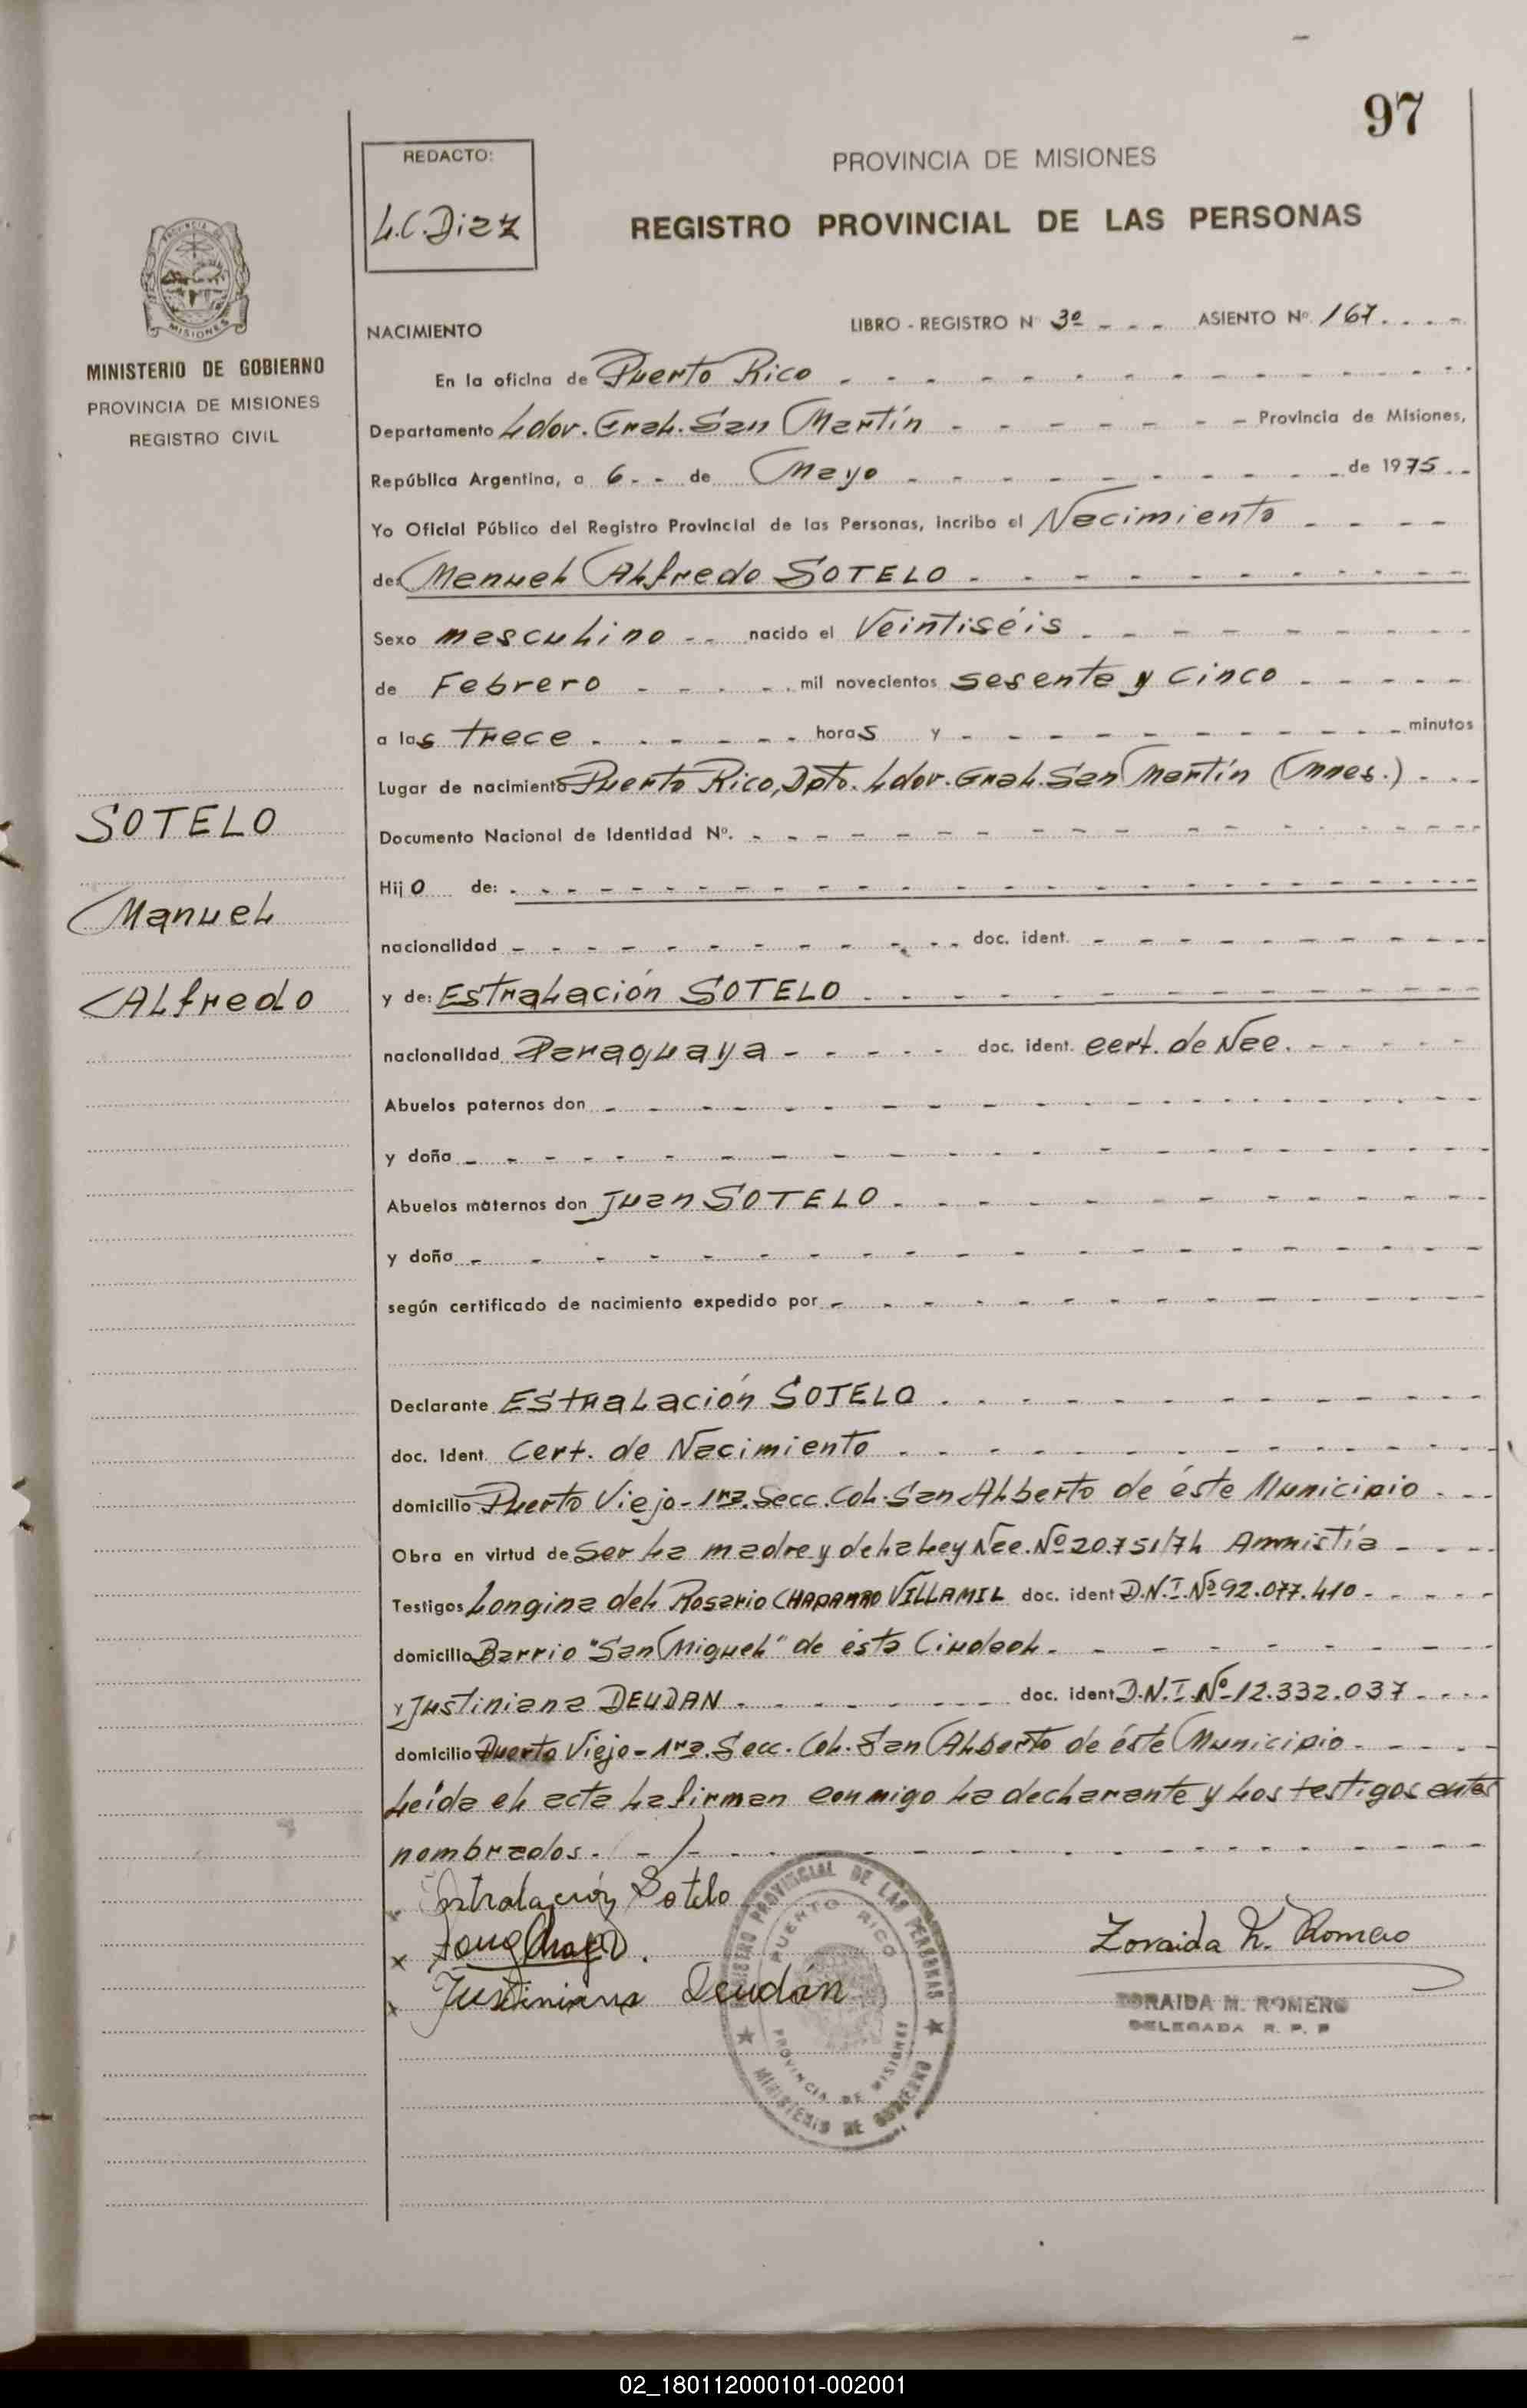 97
REDACTO:
L.C. Diaz
PROVINCIA DE MISIONES
REGISTRO PROVINCIAL DE LAS PERSONAS
MISIONES
MINISTERIO DE GOBIERNO
PROVINCIA DE MISIONES
REGISTRO CIVIL
SOTELO
Manuel
Alfredo
NACIMIENTO LIBRO - REGISTRO Nº 3º - - - ASIENTO Nº. 167. - - -
En la oficina de Puerto Rico
Departamento Ldor. Gral. San Martín Provincia de Misiones,
República Argentina, a 6 - - de Mayo de 1975
Yo Oficial Público del Registro Provincial de las Personas, incribo el Nacimiento
de: Manuel Alfredo SOTELO
Sexo masculino nacido el Veintiséis
de Febrero mil novecientos sesenta y cinco
a las trece horas y minutos
Lugar de nacimiento Puerto Rico, Dpto. Ldor. Gral. San Martín (Mnes.)
Documento Nacional de Identidad Nº.
Hijo de:
nacionalidad doc. ident.
y de: Estralación SOTELO
nacionalidad Paraguaya doc. ident. cert. de Nac.
Abuelos paternos don
y doña
Abuelos maternos don Juan SOTELO
y doña
según certificado de nacimiento expedido por
Declarante Estralación SOTELO
doc. Ident. Cert. de Nacimiento
domicilio Puerto Viejo - 1ra. Secc. Col. San Alberto de éste Municipio
Obra en virtud de ser la madre y de la Ley Nac. Nº 20.751/74 Amnistía
Testigos Longina del Rosario CHAPARRO VILLAMIL doc. ident D.N.I. Nº 92.077.410
domicilio Barrio "San Miguel" de ésta Ciudad.
y Justiniana DEUDAN doc. ident D.N.I. Nº 12.332.037
domicilio Puerto Viejo - 1ra. Secc. Col. San Alberto de éste Municipio
Leída el acta la firman conmigo la declarante y los testigos antes
nombrados.
x Estralación Sotelo
x
x Justiniana Deudán
REGISTRO PROVINCIAL DE LAS PERSONAS
PUERTO RICO
PROVINCIA DE MISIONES
MINISTERIO DE GOBIERNO
Zoraida M. Romero
ZORAIDA M. ROMERO
DELEGADA R. P. P
02_180112000101-002001